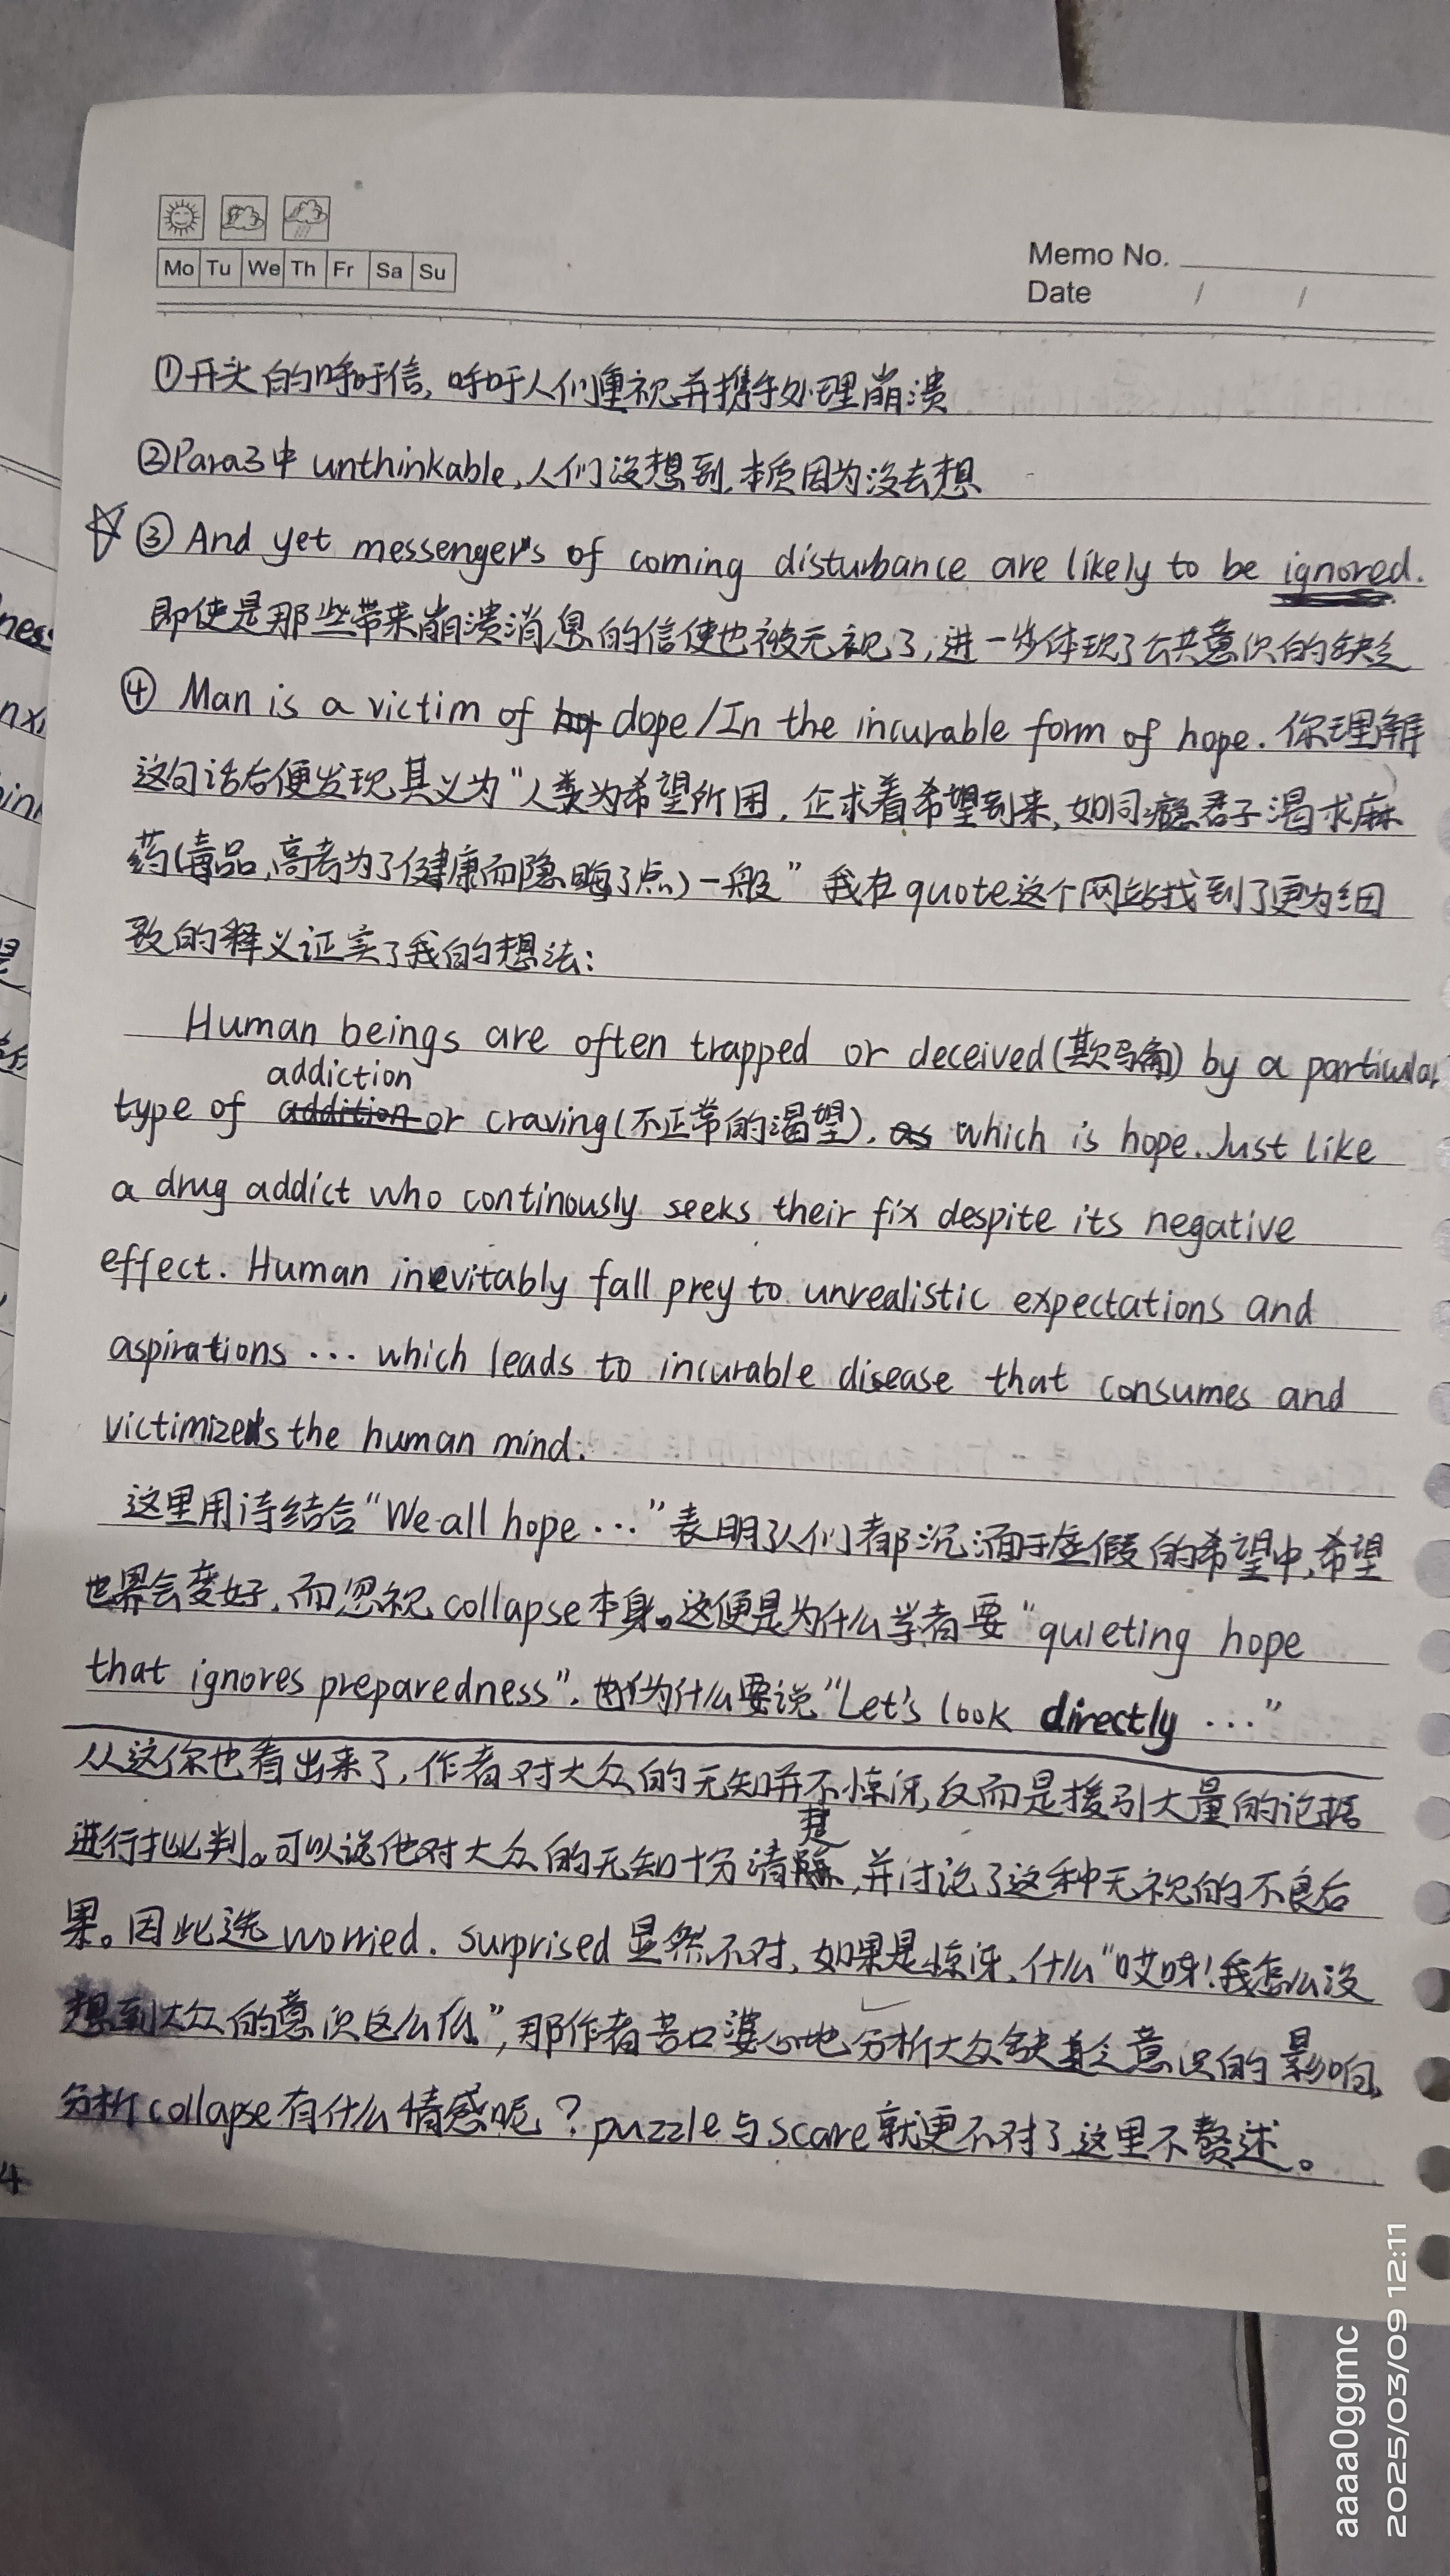 Mo Tu We Th Fr Sa Su
Memo No.
Date / /
①开头的呼吁信,呼吁人们重视并携手处理崩溃
②Para3中 unthinkable,人们没想到,本质因为没去想
③ And yet messengers of coming disturbance are likely to be ignored.
即使是那些带来崩溃消息的信使也被无视了,进一步体现了公共意识的缺乏
④ Man is a victim of dope/In the incurable form of hope. 你理解
这句话后便发现其义为“人类为希望所困,企求着希望到来,如同瘾君子渴求麻
药(毒品,高考为了健康而隐晦了点)一般” 我在quote这个网站找到了更为细
致的释义证实了我的想法:
Human beings are often trapped or deceived(欺骗) by a particular
addiction
type of addition or craving(不正常的渴望), as which is hope. Just like
a drug addict who continously seeks their fix despite its negative
effect. Human inevitably fall prey to unrealistic expectations and
aspirations ... which leads to incurable disease that consumes and
victimizes the human mind.
这里用诗结合“We all hope ...”表明了人们都沉湎于虚假的希望中,希望
世界会变好,而忽视collapse本身。这便是为什么学者要“quieting hope
that ignores preparedness”.也为什么要说“Let's look directly ...”
从这你也看出来了,作者对大众的无知并不惊讶,反而是援引大量的论据
进行批判。可以说他对大众的无知十分清楚,并讨论了这种无视的不良后
果。因此选worried. surprised显然不对,如果是惊讶,什么“哎呀!我怎么没
想到大众的意识这么低”,那作者苦口婆心地分析大众缺乏意识的影响,
分析collapse有什么情感呢?puzzle与scare就更不对了这里不赘述。
ness
nxi
4
aaaa0ggmc
2025/03/09 12:11